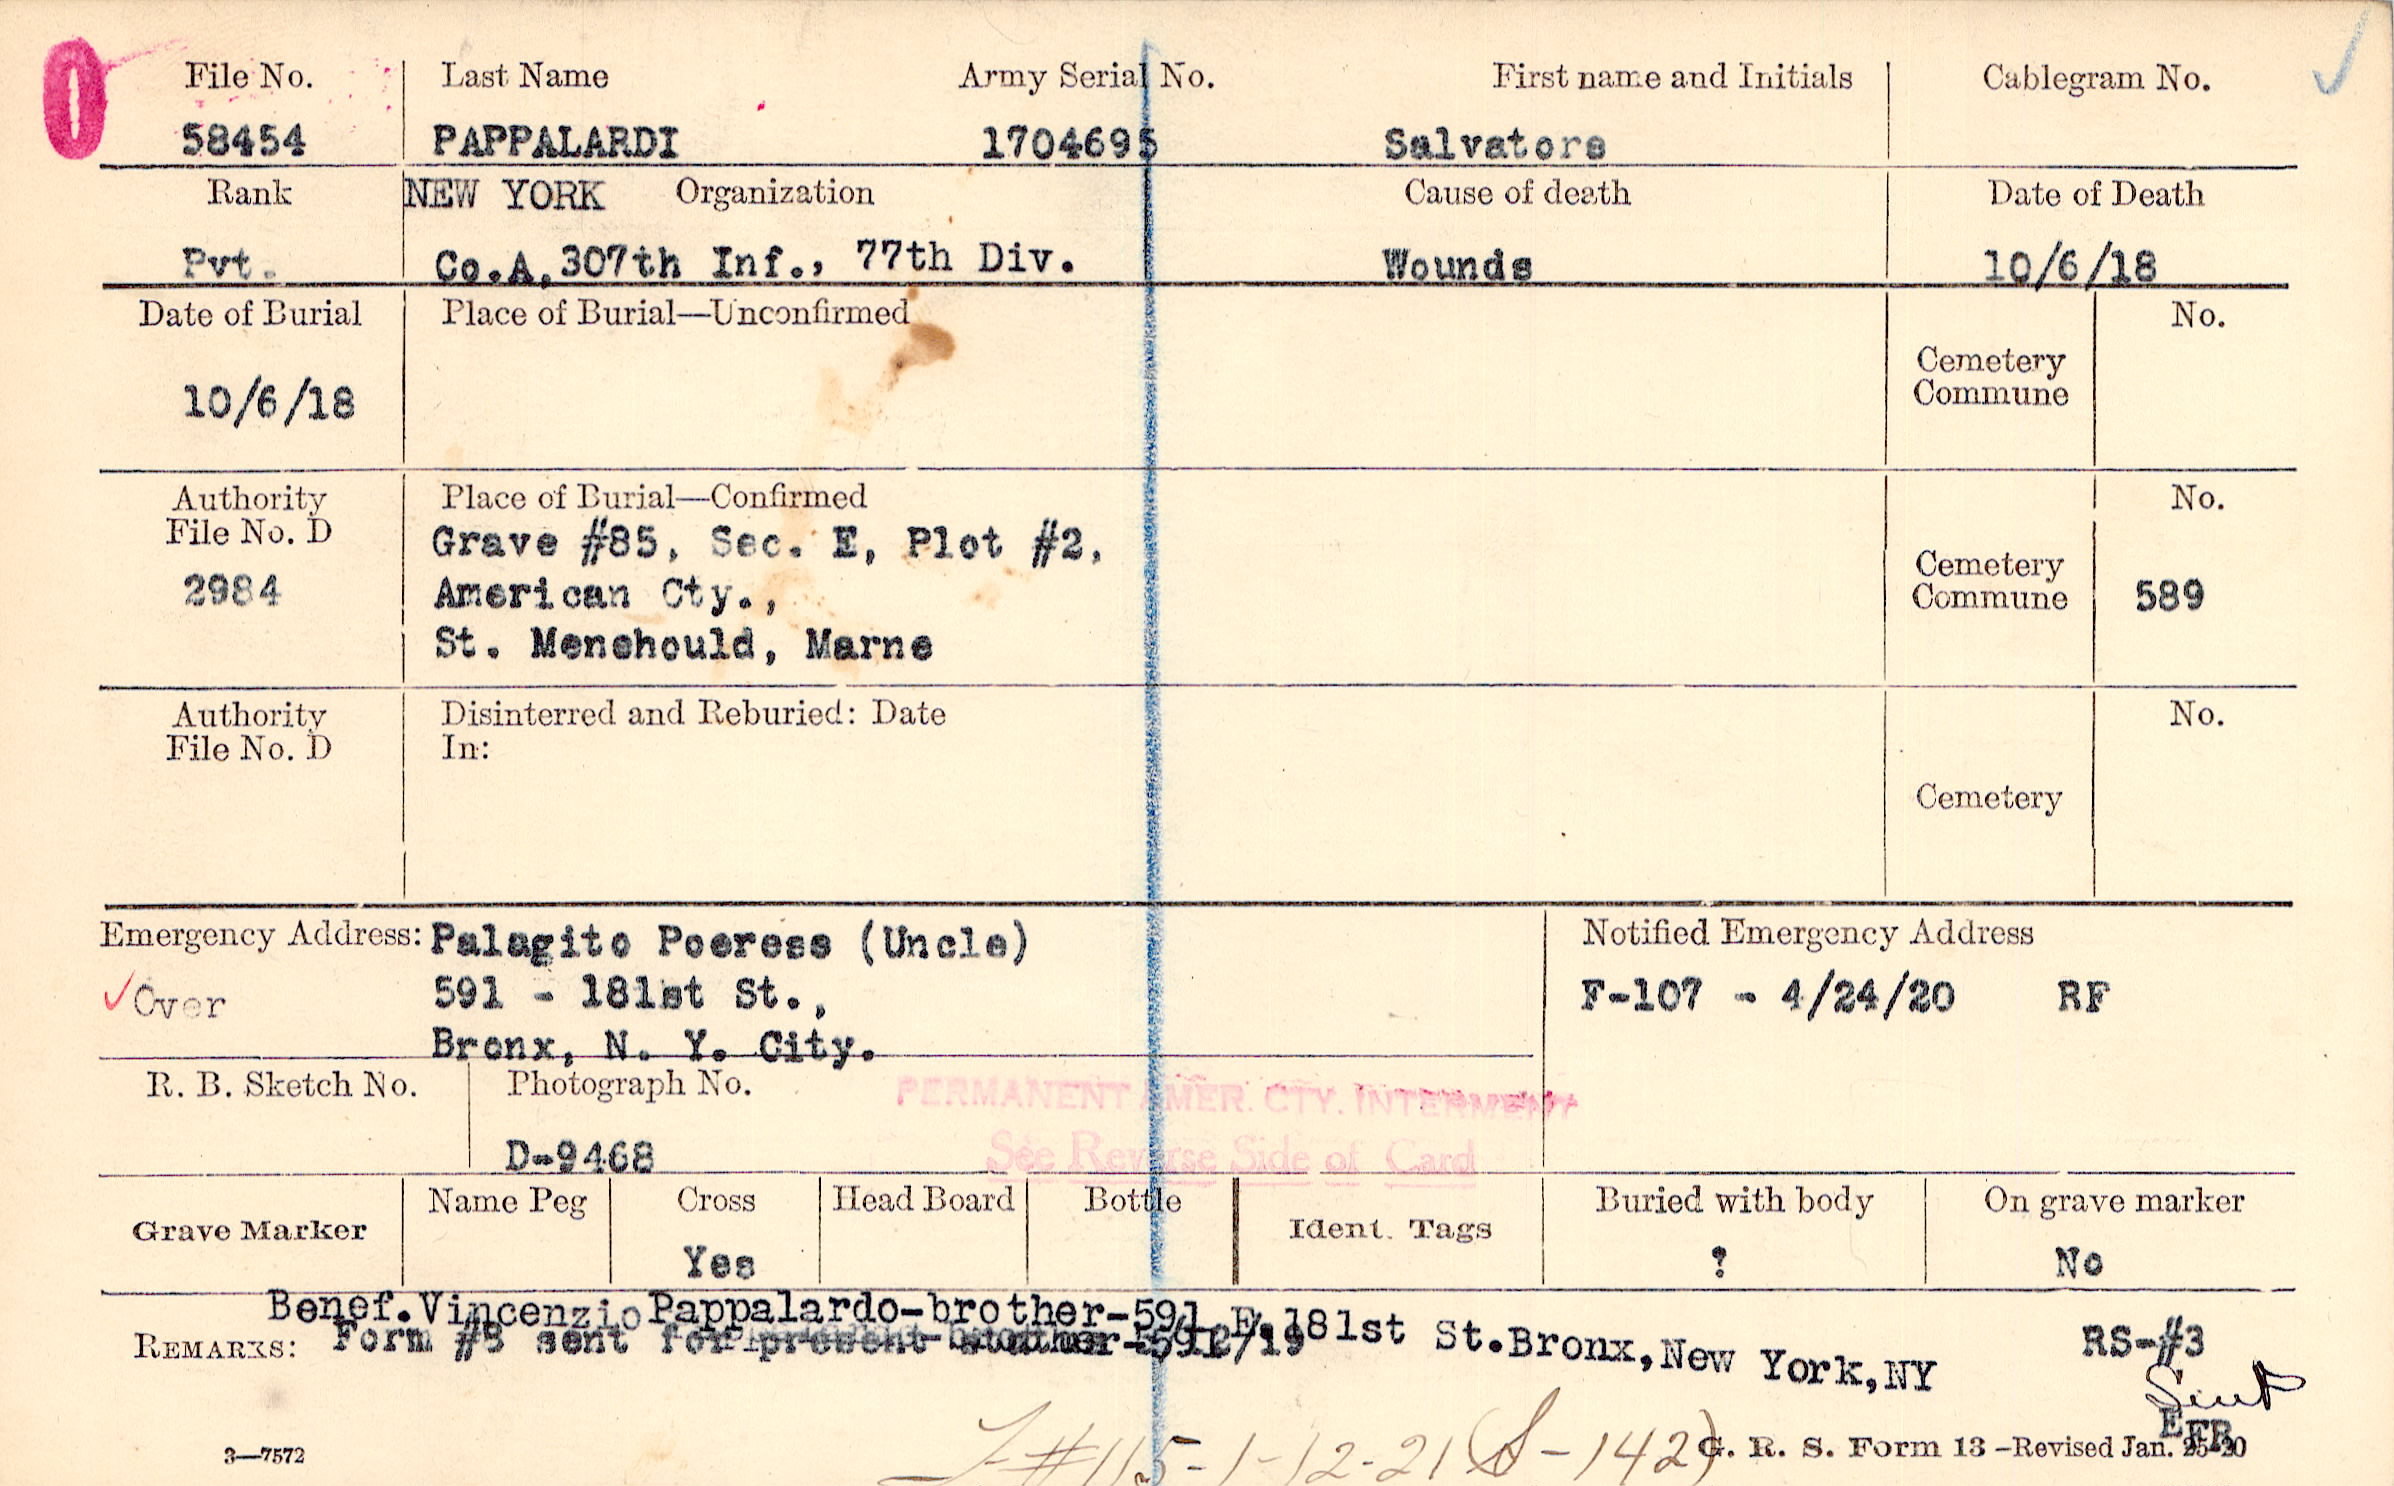 File No. Last Name Army Serial No. First name and Initials Cablegram No.
58454 PAPPALARDI 1704695 Salvatore
Rank NEW YORK Organization Cause of death Date of Death
Pvt. Co.A, 307th Inf., 77th Div. Wounds 10/6/18
Date of Burial Place of Burial—Unconfirmed No.
10/6/18 Cemetery
Commune
Authority Place of Burial—Confirmed No.
File No. D Grave #85, Sec. E, Plot #2,
2984 American Cty., Cemetery
Commune 589
St. Menehould, Marne
Authority Disinterred and Reburied: Date No.
File No. D In:
Cemetery
Emergency Address: Palagito Poeress (Uncle) Notified Emergency Address
Over 591 - 181st St., F-107 - 4/24/20 RF
Bronx, N. Y. City.
R. B. Sketch No. Photograph No. PERMANENT AMER. CTY. INTERMENT
D-9468 See Reverse Side of Card
Grave Marker Name Peg Cross Head Board Bottle Ident. Tags Buried with body On grave marker
Yes ? No
Benef. Vincenzio Pappalardo-brother-591 E. 181st St. Bronx, New York, NY
REMARKS: Form #8 sent for present RS-#3
Sent
EFR
#115-1-12-21 (S-142)
3—7572 G. R. S. Form 13 -Revised Jan. 25-20